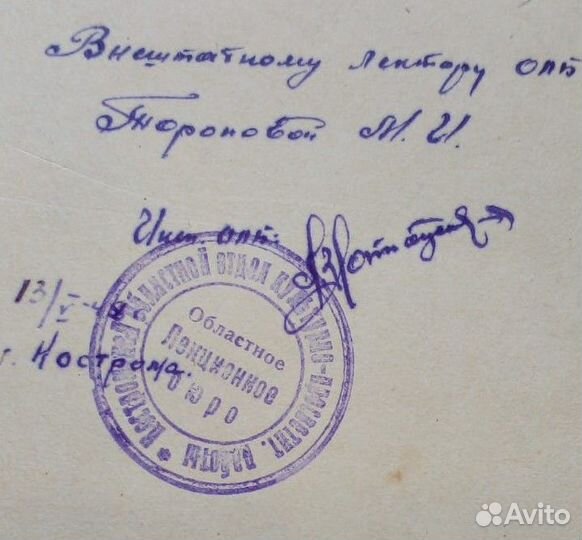 Внештатному лектору ОЛБ
Тороповой М. И.
Инст. ОЛБ.
13/V-48
г. Кострома.
Костромской областной отдел культурно-просветит. работы *
Областное
Лекционное
бюро
Avito